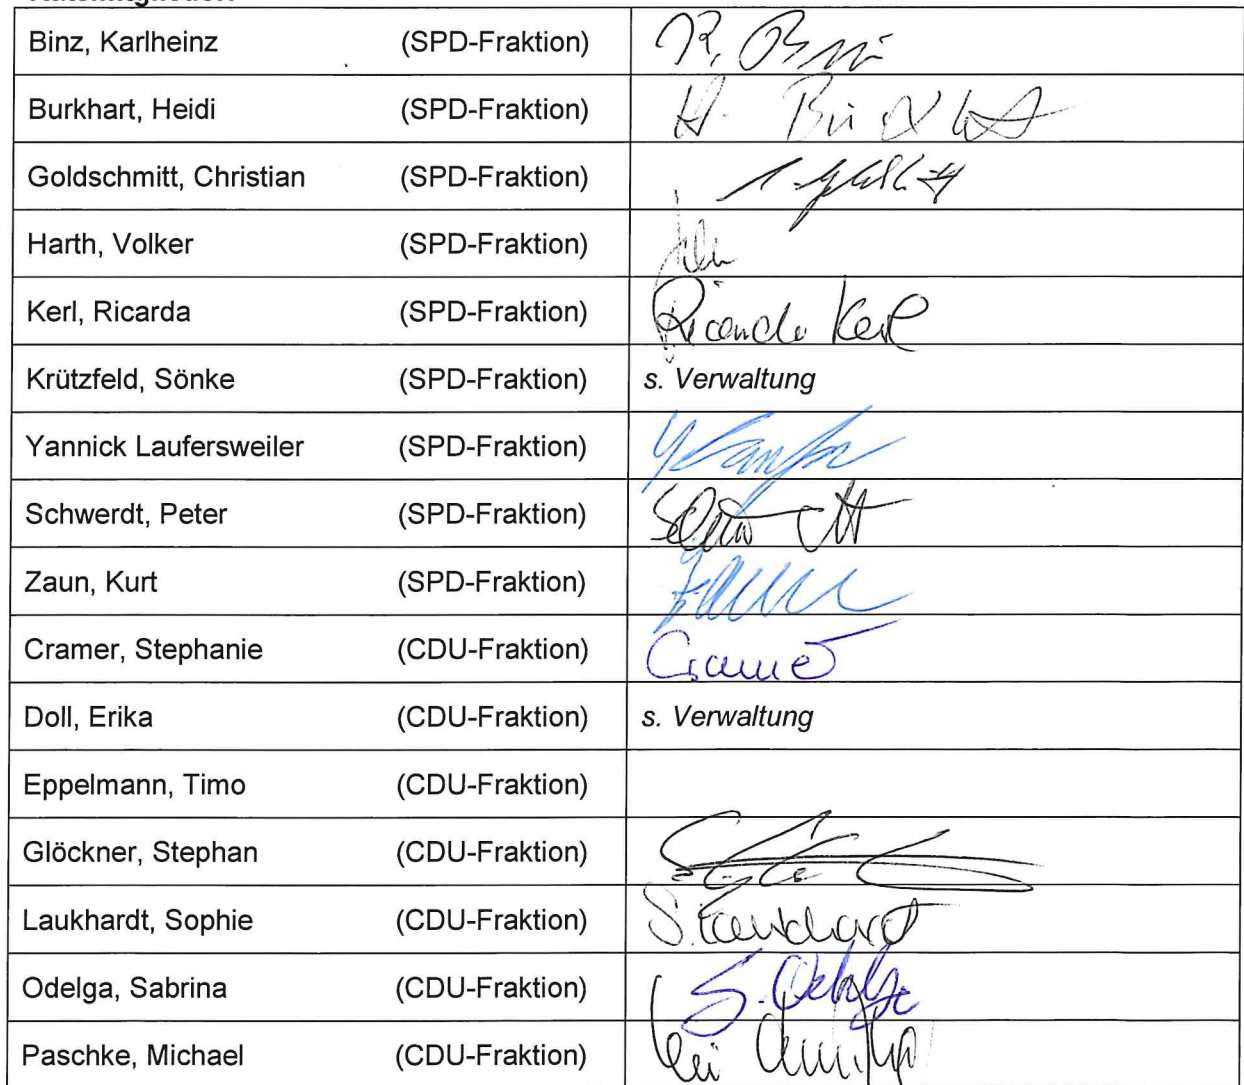 Binz, Karlheinz (SPD-Fraktion)
Burkhart, Heidi (SPD-Fraktion) H.
Goldschmitt, Christian (SPD-Fraktion)
Harth, Volker (SPD-Fraktion)
Kerl, Ricarda (SPD-Fraktion) Ricarda Kerl
Krützfeld, Sönke (SPD-Fraktion) s. Verwaltung
Yannick Laufersweiler (SPD-Fraktion)
Schwerdt, Peter (SPD-Fraktion)
Zaun, Kurt (SPD-Fraktion)
Cramer, Stephanie (CDU-Fraktion) Cramer
Doll, Erika (CDU-Fraktion) s. Verwaltung
Eppelmann, Timo (CDU-Fraktion)
Glöckner, Stephan (CDU-Fraktion)
Laukhardt, Sophie (CDU-Fraktion) S. Laukhardt
Odelga, Sabrina (CDU-Fraktion) S. Odelga
Paschke, Michael (CDU-Fraktion)